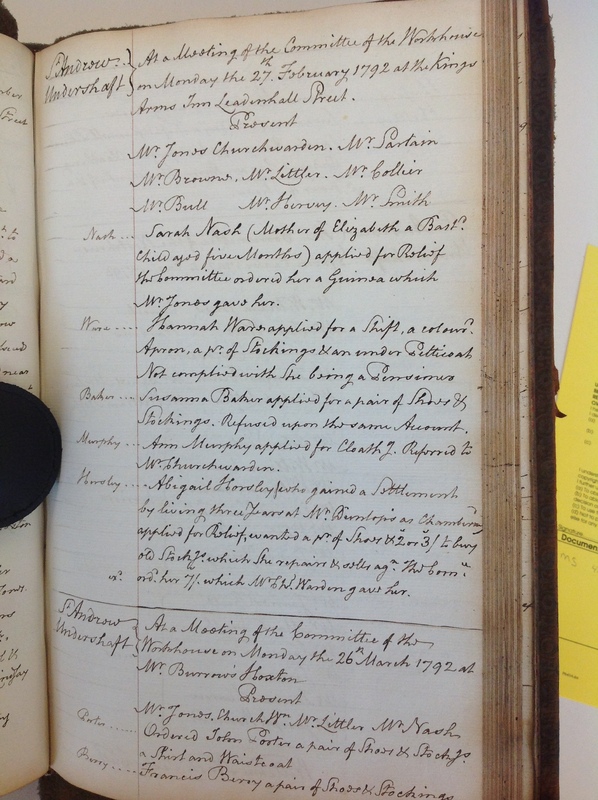 St Andrew Undershaft } At a Meeting of the Committee of the Workhouse
on Monday the 27th February 1792 at the Kings
Arms Inn Leadenhall Street.
Present
Mr Jones Churchwarden. Mr Sartain
Mr Browne. Mr Littler. Mr Collier
Mr Bull Mr Hervey. Mr Smith
Nash .... Sarah Nash (Mother of Elizabeth a Basd.
Child aged five Months) applied for Relief
the Committee ordered her a Guinea which
Mr Jones gave her.
Ware .... Hannah Ware applied for a Shift, a colourd.
Apron, a pr. of Stockings & an under Petticoat
Not complied with She being a Pensioner
Baker .... Susanna Baker applied for a pair of Shoes &
Stockings. Refused upon the same Account.
Murphy .... Ann Murphy applied for Cloathg. Referred to
Mr Churchwarden.
Horsley .... Abigail Horsley (who gained a Settlement
by living three Years at Mr Dunlop's as Chamberm
applied for Relief, wanted a pr. of Shoes & 2 or 3/ to buy
old Stockgs. which She repairs & sells agn. The Comee
ord. her 7/. which Mr Ch. Warden gave her.
St Andrew Undershaft } At a Meeting of the Committee of the
Workhouse on Monday the 26th March 1792 at
Mr Burrows Hoxton
Present
Mr Jones, Church Wn. Mr Littler Mr Nash
Porter ...... Ordered John Porter a pair of Shoes & Stockgs.
a Shirt and Waistcoat
Berry .... Francis Berry a pair of Shoes & Stockings
Signature
Documen
MS